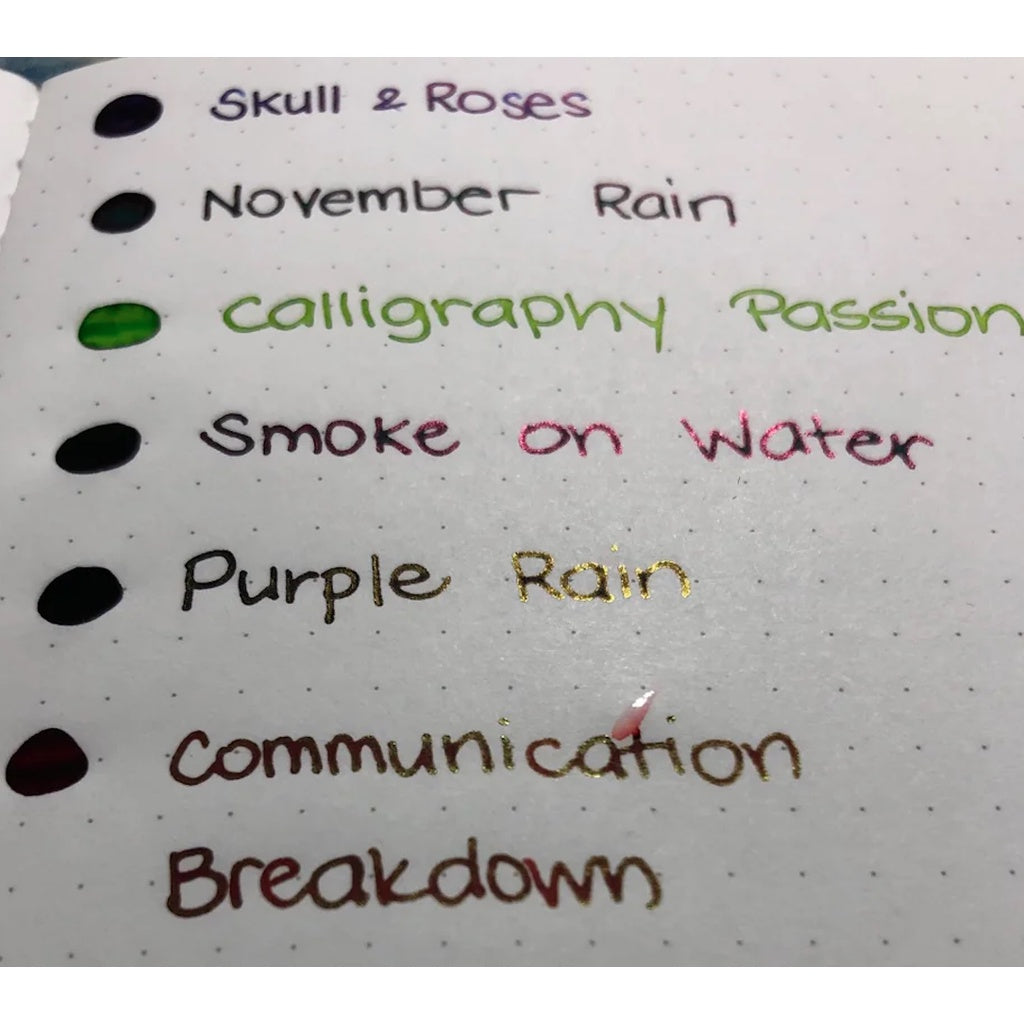 Skull & Roses
November Rain
Calligraphy Passion
Smoke on Water
Purple Rain
Communication
Breakdown